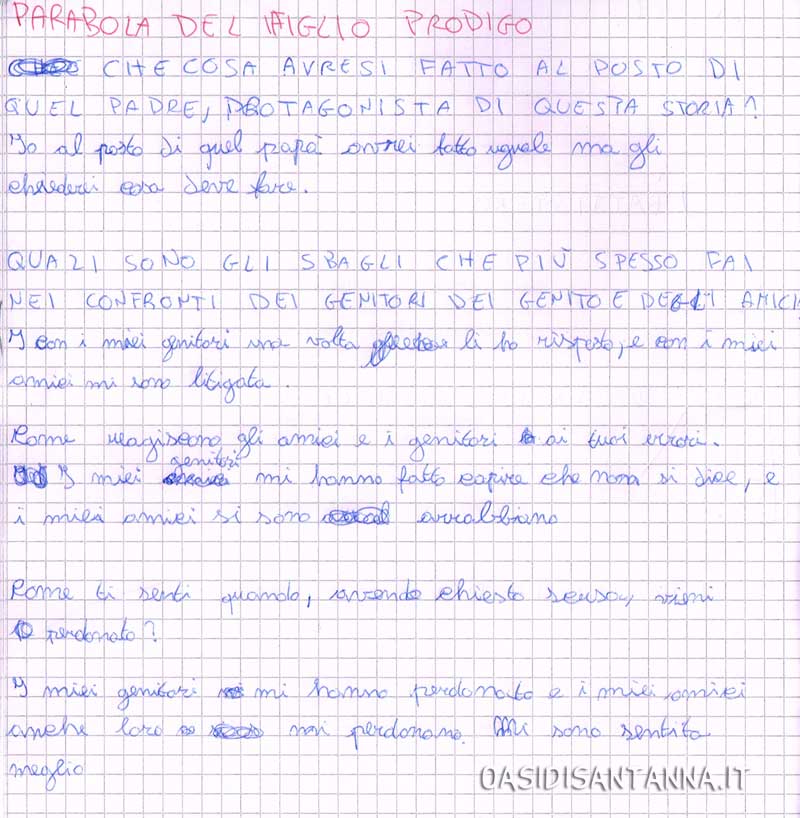 PARABOLA DEL FIGLIO PRODIGO
CHE COSA AVRESI FATTO AL POSTO DI
QUEL PADRE, PROTAGONISTA DI QUESTA STORIA?
Io al posto di quel papà avrei fatto uguale ma gli
chiederei cosa deve fare.
QUALI SONO GLI SBAGLI CHE PIÙ SPESSO FAI
NEI CONFRONTI DEI GENITORI DEI GENITO E DEGLI AMICI
I con i miei genitori una volta li ho risposto, e con i miei
amici mi sono litigata.
Come reagiscono gli amici e i genitori ai tuoi errori.
I miei genitori mi hanno fatto capire che non si dice, e
i miei amici si sono arrabbiano
Come ti senti quando, avendo chiesto scusa, vieni
perdonato?
I miei genitori mi hanno perdonato e i miei amici
anche loro mi perdonano. Mi sono sentita
meglio
OASIDISANTANNA.IT